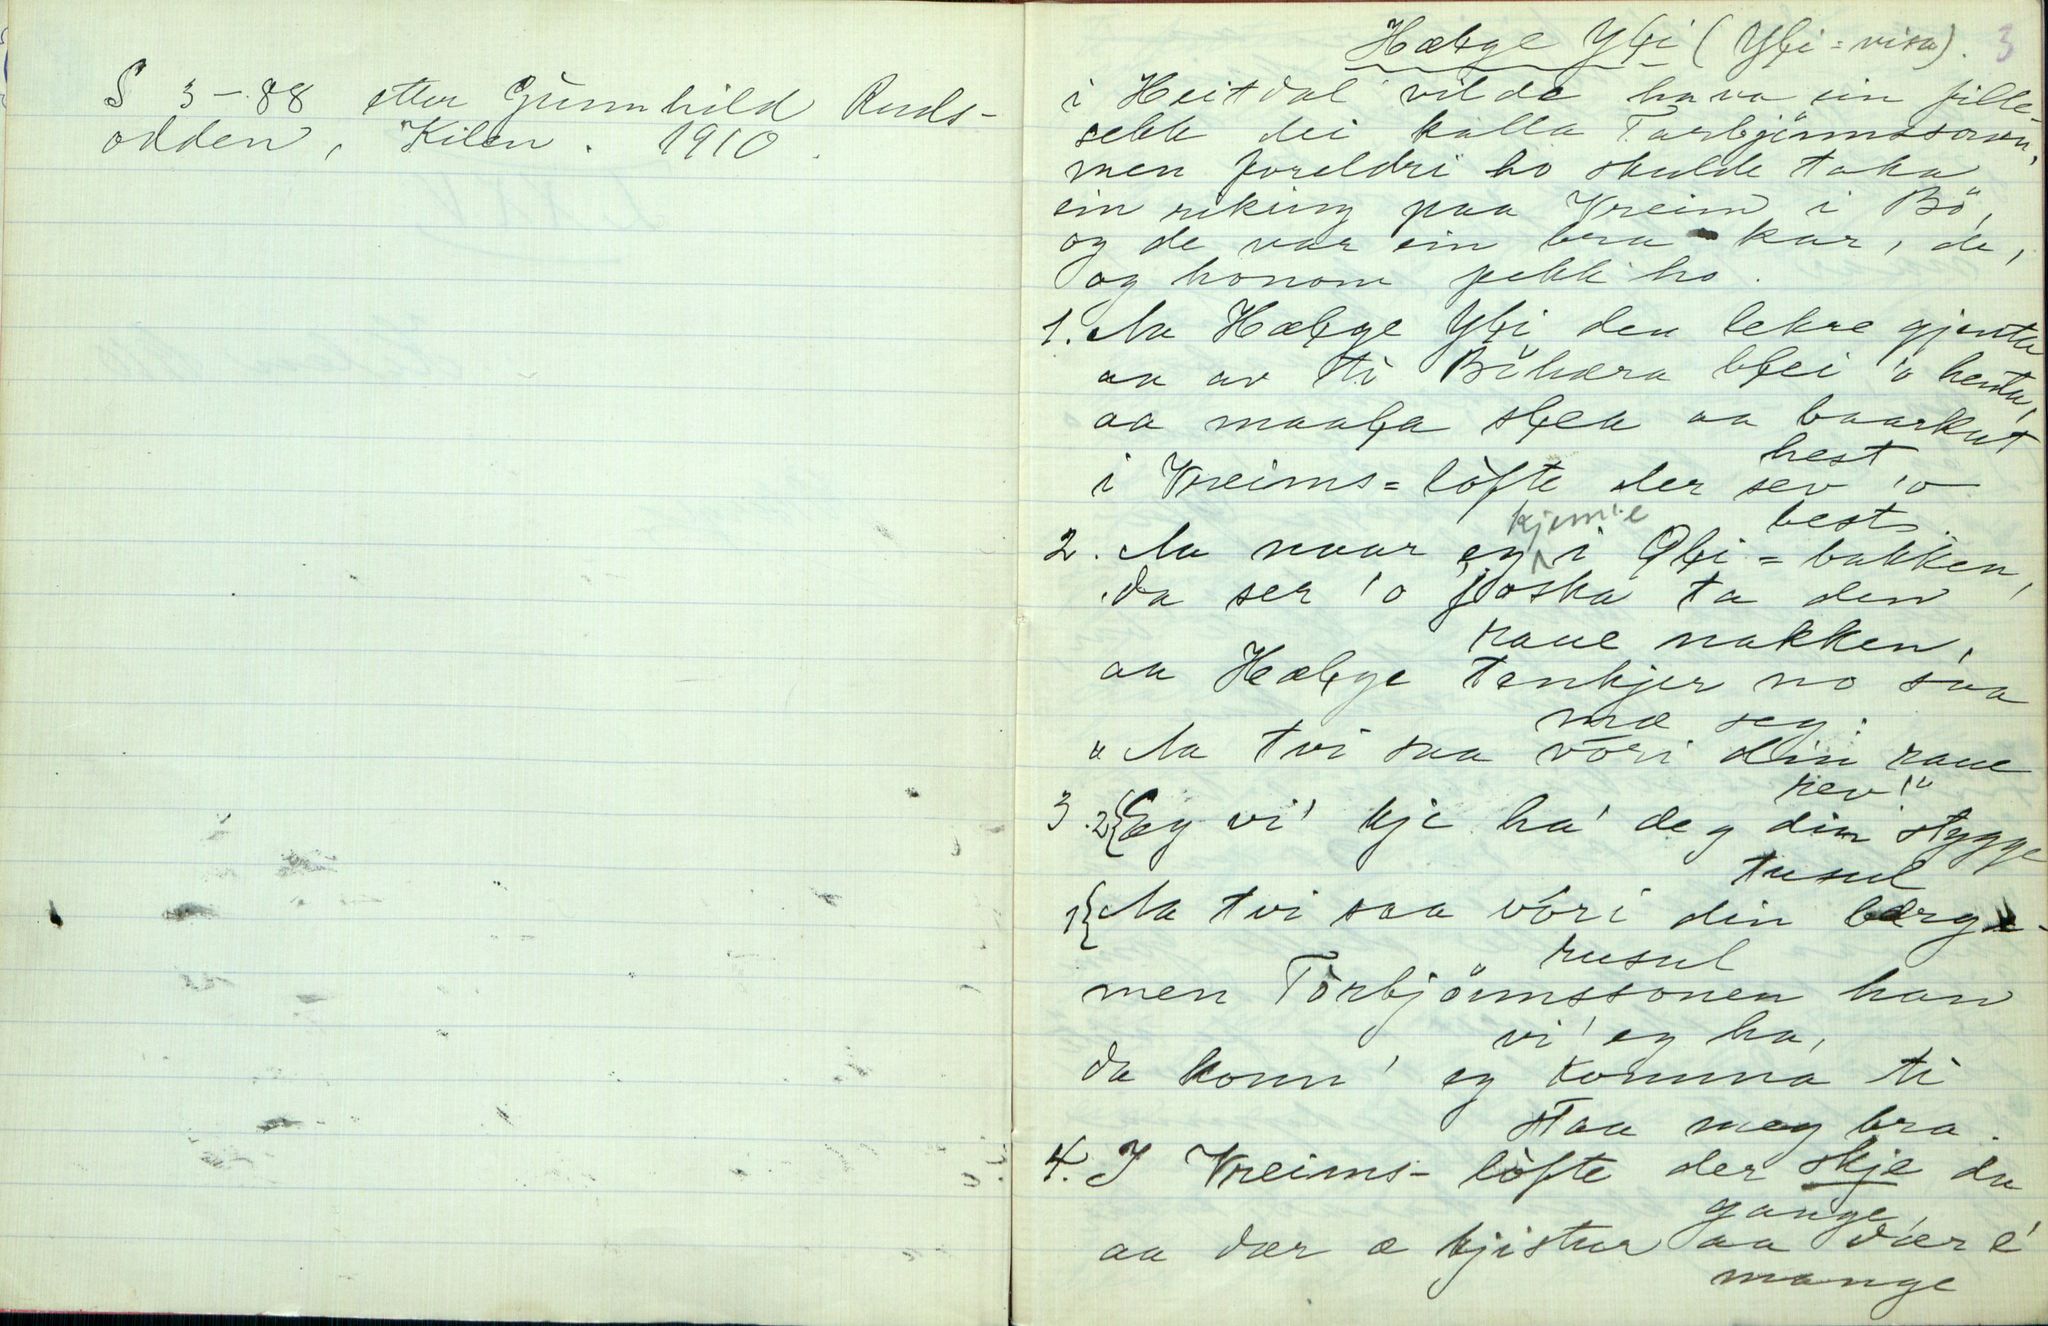 S 3-88 etter Gunnhild Ruds-
odden, Kilen. 1910.
Hæłge Yłi (Yłi=visa). 3
i Heitdal vilde hava ein fille-
sekk dei kalla Torbjönnssonen,
men foreldri ho skulde taka
ein riking paa Vreim i Bö,
og de var ein bra kar, de,
og honom fekk ho.
1. Aa Hæłge Yłi den lekre gjenta
aa av ti Böhæra błei 'o henta,
aa maała słea aa baarkut
hest
i Vreims=lòfte der sev 'o
best.
2. Aa naar eg kjem'e i Ołi=bakken,
da ser 'o joska ta den
raue nakken,
aa Hæłge tenkjer no saa
mæ seg:
"Aa tvi saa vòri din raue
rev!"
3. 2{Eg vi' kje ha' deg din stygge
tusul
1{Aa tvi saa vòri din bærge-
rusul
men Tòrbjönnssonen han
vi' eg ha,
da konn' eg komma ti
staa meg bra.
4. I Vreims-lòfte der skje da
gange,
aa dær æ kjistur aa dær é
mange